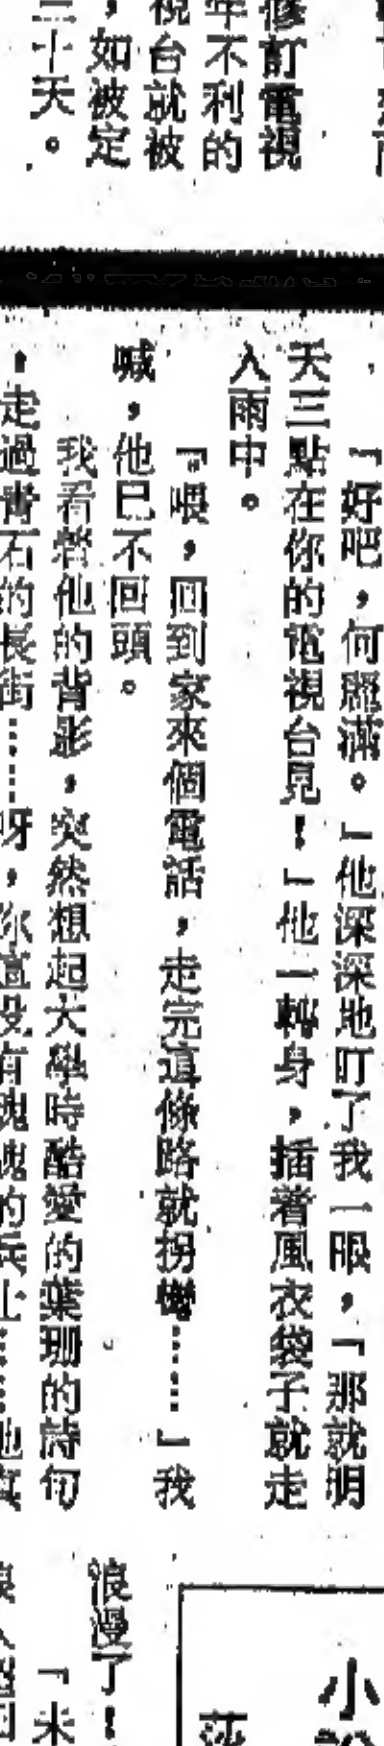 修訂電視
年不利的
視台就被
，如被定
三十天。
「好吧，何麗滿。」他深深地盯了我一眼，「那就明
天三點在你的電視台見！」他一轉身，插着風衣袋子就走
入雨中。
「喂，回到家來個電話，走完這條路就拐彎……」我
喊，他已不回頭。
我看着他的背影，突然想起大學時酷愛的葉珊的詩句
，走過青石的長街……呀，你這沒有魂魄的兵士……他真
小說
浪漫了！
「米